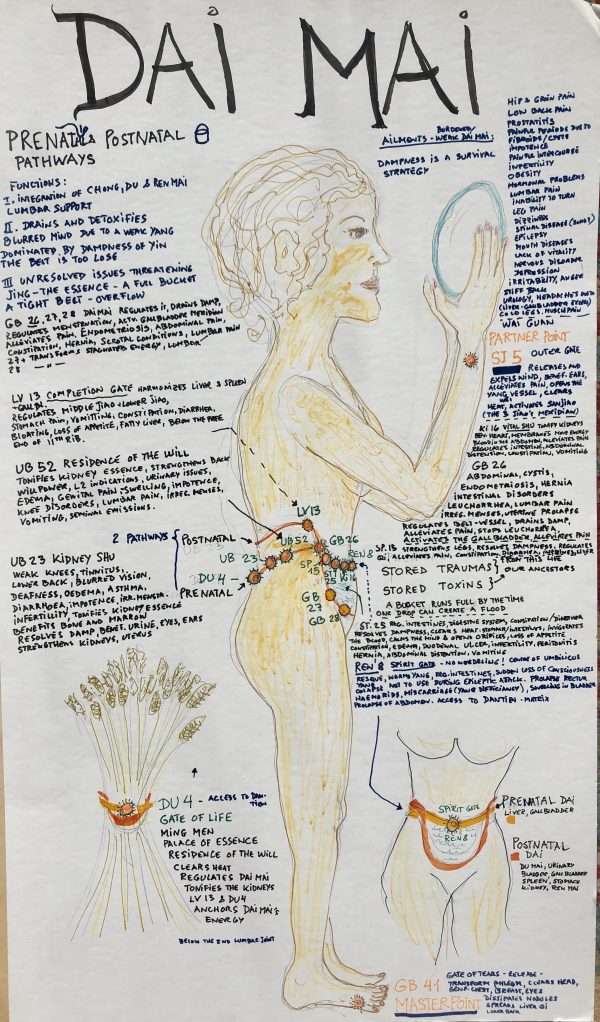 DAI MAI
PRENATAL & POSTNATAL
PATHWAYS
FUNCTIONS:
I. INTEGRATION OF CHONG, DU & REN MAI
LUMBAR SUPPORT
II. DRAINS AND DETOXIFIES
BLURRED MIND DUE TO A WEAK YANG
DOMINATED BY DAMPNESS OF YIN
THE BELT IS TOO LOSE
III UNRESOLVED ISSUES THREATENING
JING - THE ESSENCE - A FULL BUCKET
A TIGHT BELT - OVERFLOW
GB 26, 27, 28 DAI MAI REGULATES IT, DRAINS DAMP,
REGULATES MENSTRUATION, ACTV. GALLBLADDER MERIDIAN
ALLEVIATES PAIN, ENDOMETRIOSIS, ABDOMINAL PAIN,
CONSTIPATION, HERNIA, SCROTAL CONDITIONS, LUMBAR PAIN
27+ TRANSFORMS STAGNATED ENERGY, LUMBAR
28 - " -
LV 13 COMPLETION GATE HARMONIZES LIVER & SPLEEN
REGULATES MIDDLE JIAO + LOWER JIAO,
STOMACH PAIN, VOMITTING, CONSTIPATION, DIARRHEA,
BLOATING, LOSS OF APPETITE, FATTY LIVER, BELOW THE FREE
END OF 11TH RIB.
UB 52 RESIDENCE OF THE WILL
TONIFIES KIDNEY ESSENCE, STRENGTHENS BACK
WILLPOWER, L2 INDICATIONS, URINARY ISSUES,
EDEMA, GENITAL PAIN - SWELLING, IMPOTENCE,
KNEE DISORDERS, LUMBAR PAIN, IRREG. MENSES,
VOMITING, SEMINAL EMISSIONS.
2 PATHWAYS
POSTNATAL
PRENATAL
UB 23 KIDNEY SHU
WEAK KNEES, TINNITUS,
LOWER BACK, BLURRED VISION,
DEAFNESS, OEDEMA, ASTHMA,
DIARRHOEA, IMPOTENCE, IRR. MENSTR.
INFERTILITY TONIFIES KIDNEY ESSENCE
BENEFITS BONE AND MARROW
RESOLVES DAMP, BENEF. URINE, EYES, EARS
STRENGTHENS KIDNEYS, UTERUS
LV13
UB52
UB 23
DU4
GB26
REN 8
SP 15
KI16
GB 27
GB 28
BORDERED
AILMENTS - WEAK DAI MAI:
DAMPNESS IS A SURVIVAL
STRATEGY
HIP & GROIN PAIN
LOW BACK PAIN
PROSTATITIS
PAINFUL PERIODS DUE TO
FIBROIDS/CYSTS
IMPOTENCE
PAINFUL INTERCOURSE
INFERTILITY
OBESITY
HORMONAL PROBLEMS
LUMBAR PAIN
INABILITY TO TURN
LEG PAIN
DIZZINESS
SPINAL DISEASE
EPILEPSY
MOUTH DISEASES
LACK OF VITALITY
NERVOUS DISORDER
DEPRESSION
IRRITABILITY, ANGER
STIFF BACK
UROLOGY, HEADACHES DUE TO
(LIVER-GALLBLADDER EXCESS)
COLD LEGS, MUSCLE PAIN
WAI GUAN
PARTNER POINT
SJ 5 OUTER GATE
RELEASES AND
EXPELS WIND, BENEF. EARS,
ALLEVIATES PAIN, OPENS THE
YANG VESSEL, CLEARS
HEAT, ACTIVATES SANJIAO
(THE 3 JIAO'S MERIDIAN)
KI 16 VITAL SHU TONIFY KIDNEYS
BEN. HEART, MEMBRANES MOVE ENERGY
BLOOD IN THE ABDOMEN, ALLEVIATES PAIN
REGULATES INTESTINE, ABDOMINAL
DISTENTION, CONSTIPATION, VOMITING
GB 26
ABDOMINAL, CYSTIS,
ENDOMETRIOSIS, HERNIA
INTESTINAL DISORDERS
LEUCHORRHEA, LUMBAR PAIN
IRREG. MENSES, UTERINE PROLAPSE
REGULATES BELT-VESSEL, DRAINS DAMP
ALLEVIATES PAIN, STOPS LEUCORRHEA,
ACTIVATES THE GALL BLADDER, ALLEVIATES PAIN
SP. 15 STRENGTHENS LEGS, RESOLVES DAMPNESS, REGULATES
QI ALLEVIATES PAIN, CONSTIPATION, DIARRHEA
STORED TRAUMAS
STORED TOXINS
FROM THIS LIFE
OUR ANCESTORS
A BUCKET RUNS FULL BY THE TIME
ONE DROP CAN CREATE A FLOOD
ST. 25 REG. INTESTINES, DIGESTIVE SYSTEM, CONSTIPATION/DIARRHEA
RESOLVES DAMPNESS, CLEARS HEAT, STOMACH/INTESTINES, INVIGORATES
THE BLOOD, CALMS THE MIND & OPENS ORIFICES, LOSS OF APPETITE
CONSTIPATION, EDEMA, DUODENAL ULCER, INFERTILITY, PERITONITIS
HERNIA, ABDOMINAL DISTENTION, VOMITING
REN 8 SPIRIT GATE - NO NEEDELING! CENTRE OF UMBILICUS
RESQUE, WARMS YANG, REG. INTESTINES, SUDDEN LOSS OF CONSCIOUSNESS
YANG COLLAPSE NOT TO USE DURING EPILEPTIC ATTACK. PROLAPSE RECTUM
HAEMORIDS, MISCARRIAGE (YANG DEFICIENCY), SWELLING IN BLADDER
PROLAPSE OF ABDOMEN. ACCESS TO DANTIEN - MATRIX
DU 4 - ACCESS TO DAN-TIEN
GATE OF LIFE
MING MEN
PALACE OF ESSENCE
RESIDENCE OF THE WILL
CLEARS HEAT
REGULATES DAI MAI
TONIFIES THE KIDNEYS
LV 13 & DU4
ANCHORS DAI MAI'S
ENERGY
BELOW THE 2ND LUMBAR JOINT
SPIRIT GATE
REN 8
PRENATAL DAI
LIVER, GALLBLADDER
POSTNATAL
DAI
DU MAI, URINARY
BLADDER, GALL BLADDER
SPLEEN, STOMACH
KIDNEY, REN MAI
GB 41
MASTER POINT
GATE OF TEARS - RELEASE -
TRANSFORM PHLEGM, CLEARS HEAD,
BENEF. CHEST, BREAST, EYES
DISSIPATES NODULES
SPREADS LIVER QI
LOWER BACK